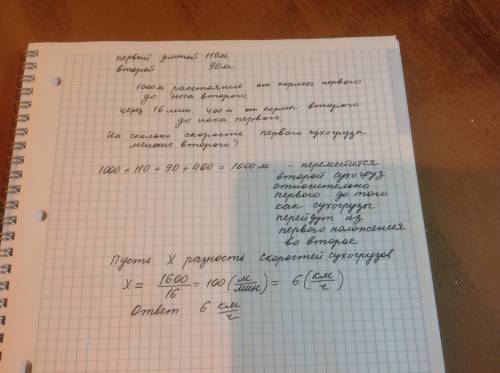 первый длиной 110м
второй 90м
1000м расстояние от кормы первого
до носа второго.
через 16 мин. 400м от кормы второго
до носа первого.
На сколько скорость первого сухогруза
меньше второго?
1000 + 110 + 90 + 400 = 1600м - переместится
второй сухогруз
относительно
первого до того
как сухогрузы
перейдут из
первого положения
во второе
Пусть X разность скоростей сухогрузов
X = 1600/16 = 100 (м/мин) = 6 (км/ч)
Ответ 6 км/ч